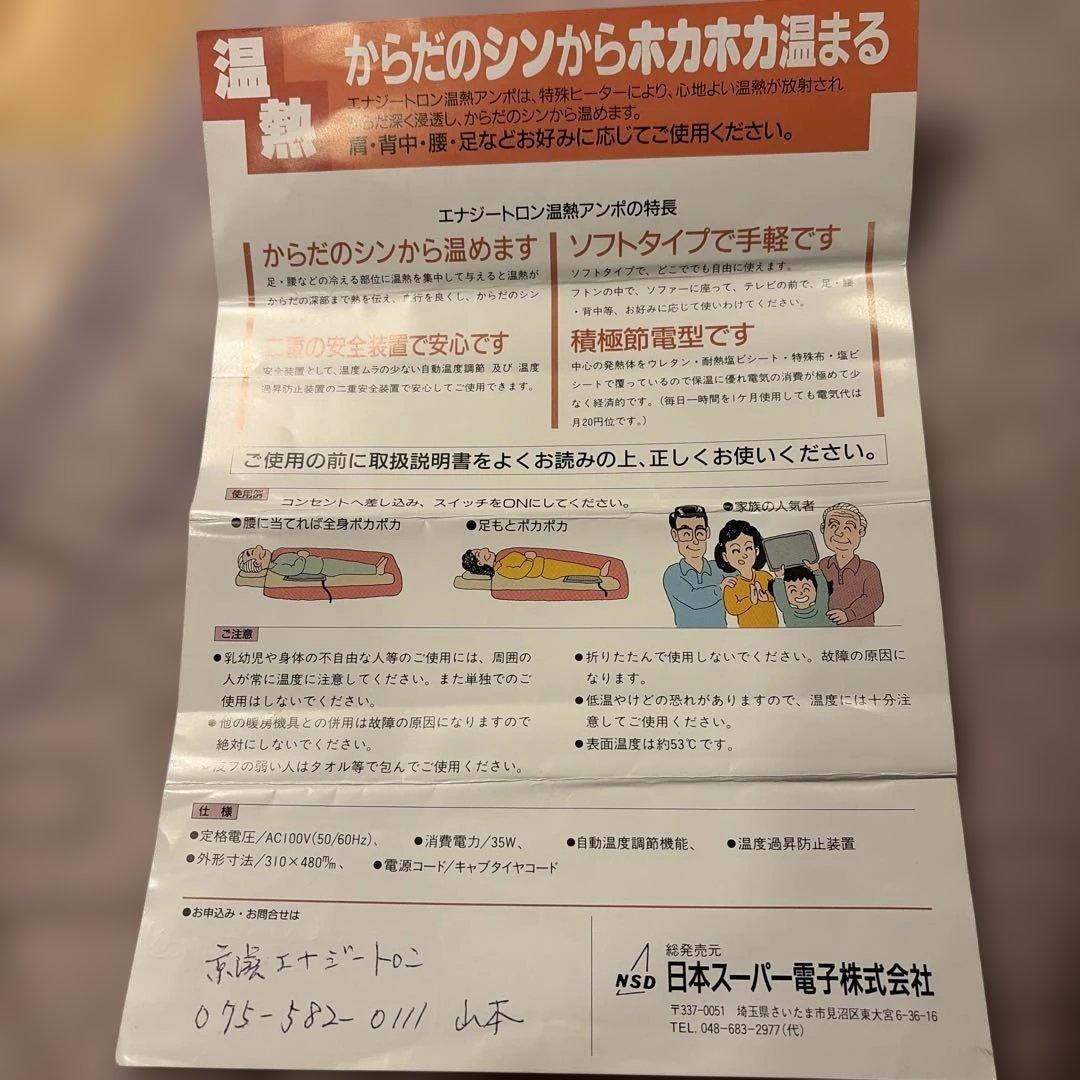 温熱
からだのシンからホカホカ温まる
エナジートロン温熱アンポは、特殊ヒーターにより、心地よい温熱が放射され
からだ深く浸透し、からだのシンから温めます。
肩・背中・腰・足などお好みに応じてご使用ください。
エナジートロン温熱アンポの特長
からだのシンから温めます
足・腰などの冷える部位に温熱を集中して与えると温熱が
からだの深部まで熱を伝え、血行を良くし、からだのシン
二重の安全装置で安心です
安全装置として、温度ムラの少ない自動温度調節 及び 温度
過昇防止装置の二重安全装置で安心してご使用できます。
ソフトタイプで手軽です
ソフトタイプで、どこででも自由に使えます。
フトンの中で、ソファーに座って、テレビの前で、足・腰
・背中等、お好みに応じて使いわけてください。
積極節電型です
中心の発熱体をウレタン・耐熱塩ビシート・特殊布・塩ビ
シートで覆っているので保温に優れ電気の消費が極めて少
なく経済的です。(毎日一時間を1ケ月使用しても電気代は
月20円位です。)
ご使用の前に取扱説明書をよくお読みの上、正しくお使いください。
使用例 コンセントへ差し込み、スイッチをONにしてください。
●腰に当てれば全身ポカポカ
●足もとポカポカ
●家族の人気者
ご注意
●乳幼児や身体の不自由な人等のご使用には、周囲の
人が常に温度に注意してください。また単独でのご
使用はしないでください。
●他の暖房機具との併用は故障の原因になりますので
絶対にしないでください。
●皮フの弱い人はタオル等で包んでご使用ください。
●折りたたんで使用しないでください。故障の原因に
なります。
●低温やけどの恐れがありますので、温度には十分注
意してご使用ください。
●表面温度は約53℃です。
仕様
●定格電圧/AC100V(50/60Hz)、 ●消費電力/35W、 ●自動温度調節機能、 ●温度過昇防止装置
●外形寸法/310×480㎜、 ●電源コード/キャブタイヤコード
●お申込み・お問合せは
京滋エナジートロン
075-582-0111 山本
NSD
総発売元
日本スーパー電子株式会社
〒337-0051 埼玉県さいたま市見沼区東大宮6-36-16
TEL. 048-683-2977(代)